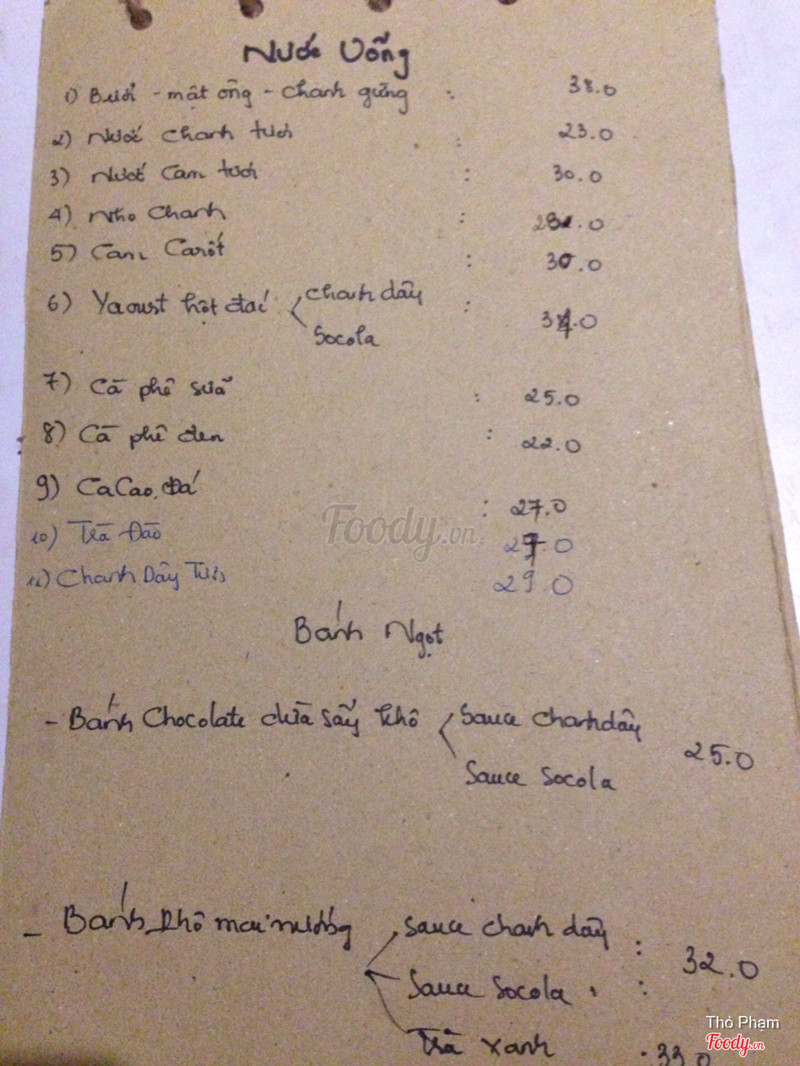 Nước Uống
1) Bưởi - mật ông - chanh gừng : 38.0
2) Nước chanh tươi : 23.0
3) Nước Cam tươi : 30.0
4) Nho chanh :
5) Cam Carốt : 30.0
6) Yaourt hột đác chanh dây :
Socola 34.0
7) Cà phê sữa : 25.0
8) Cà phê đen : 22.0
9) CaCao Đá : 27.0
10) Trà Đào 27.0
11) Chanh Dây Tươi 29.0
Bánh Ngọt
- Bánh Chocolate dừa sấy khô sauce chanh dây
sauce socola 25.0
- Bánh khô mai nướng sauce chanh dây :
sauce socola : 32.0
Trà xanh : 33.0
Foody.vn
Thỏ Phạm
Foody.vn